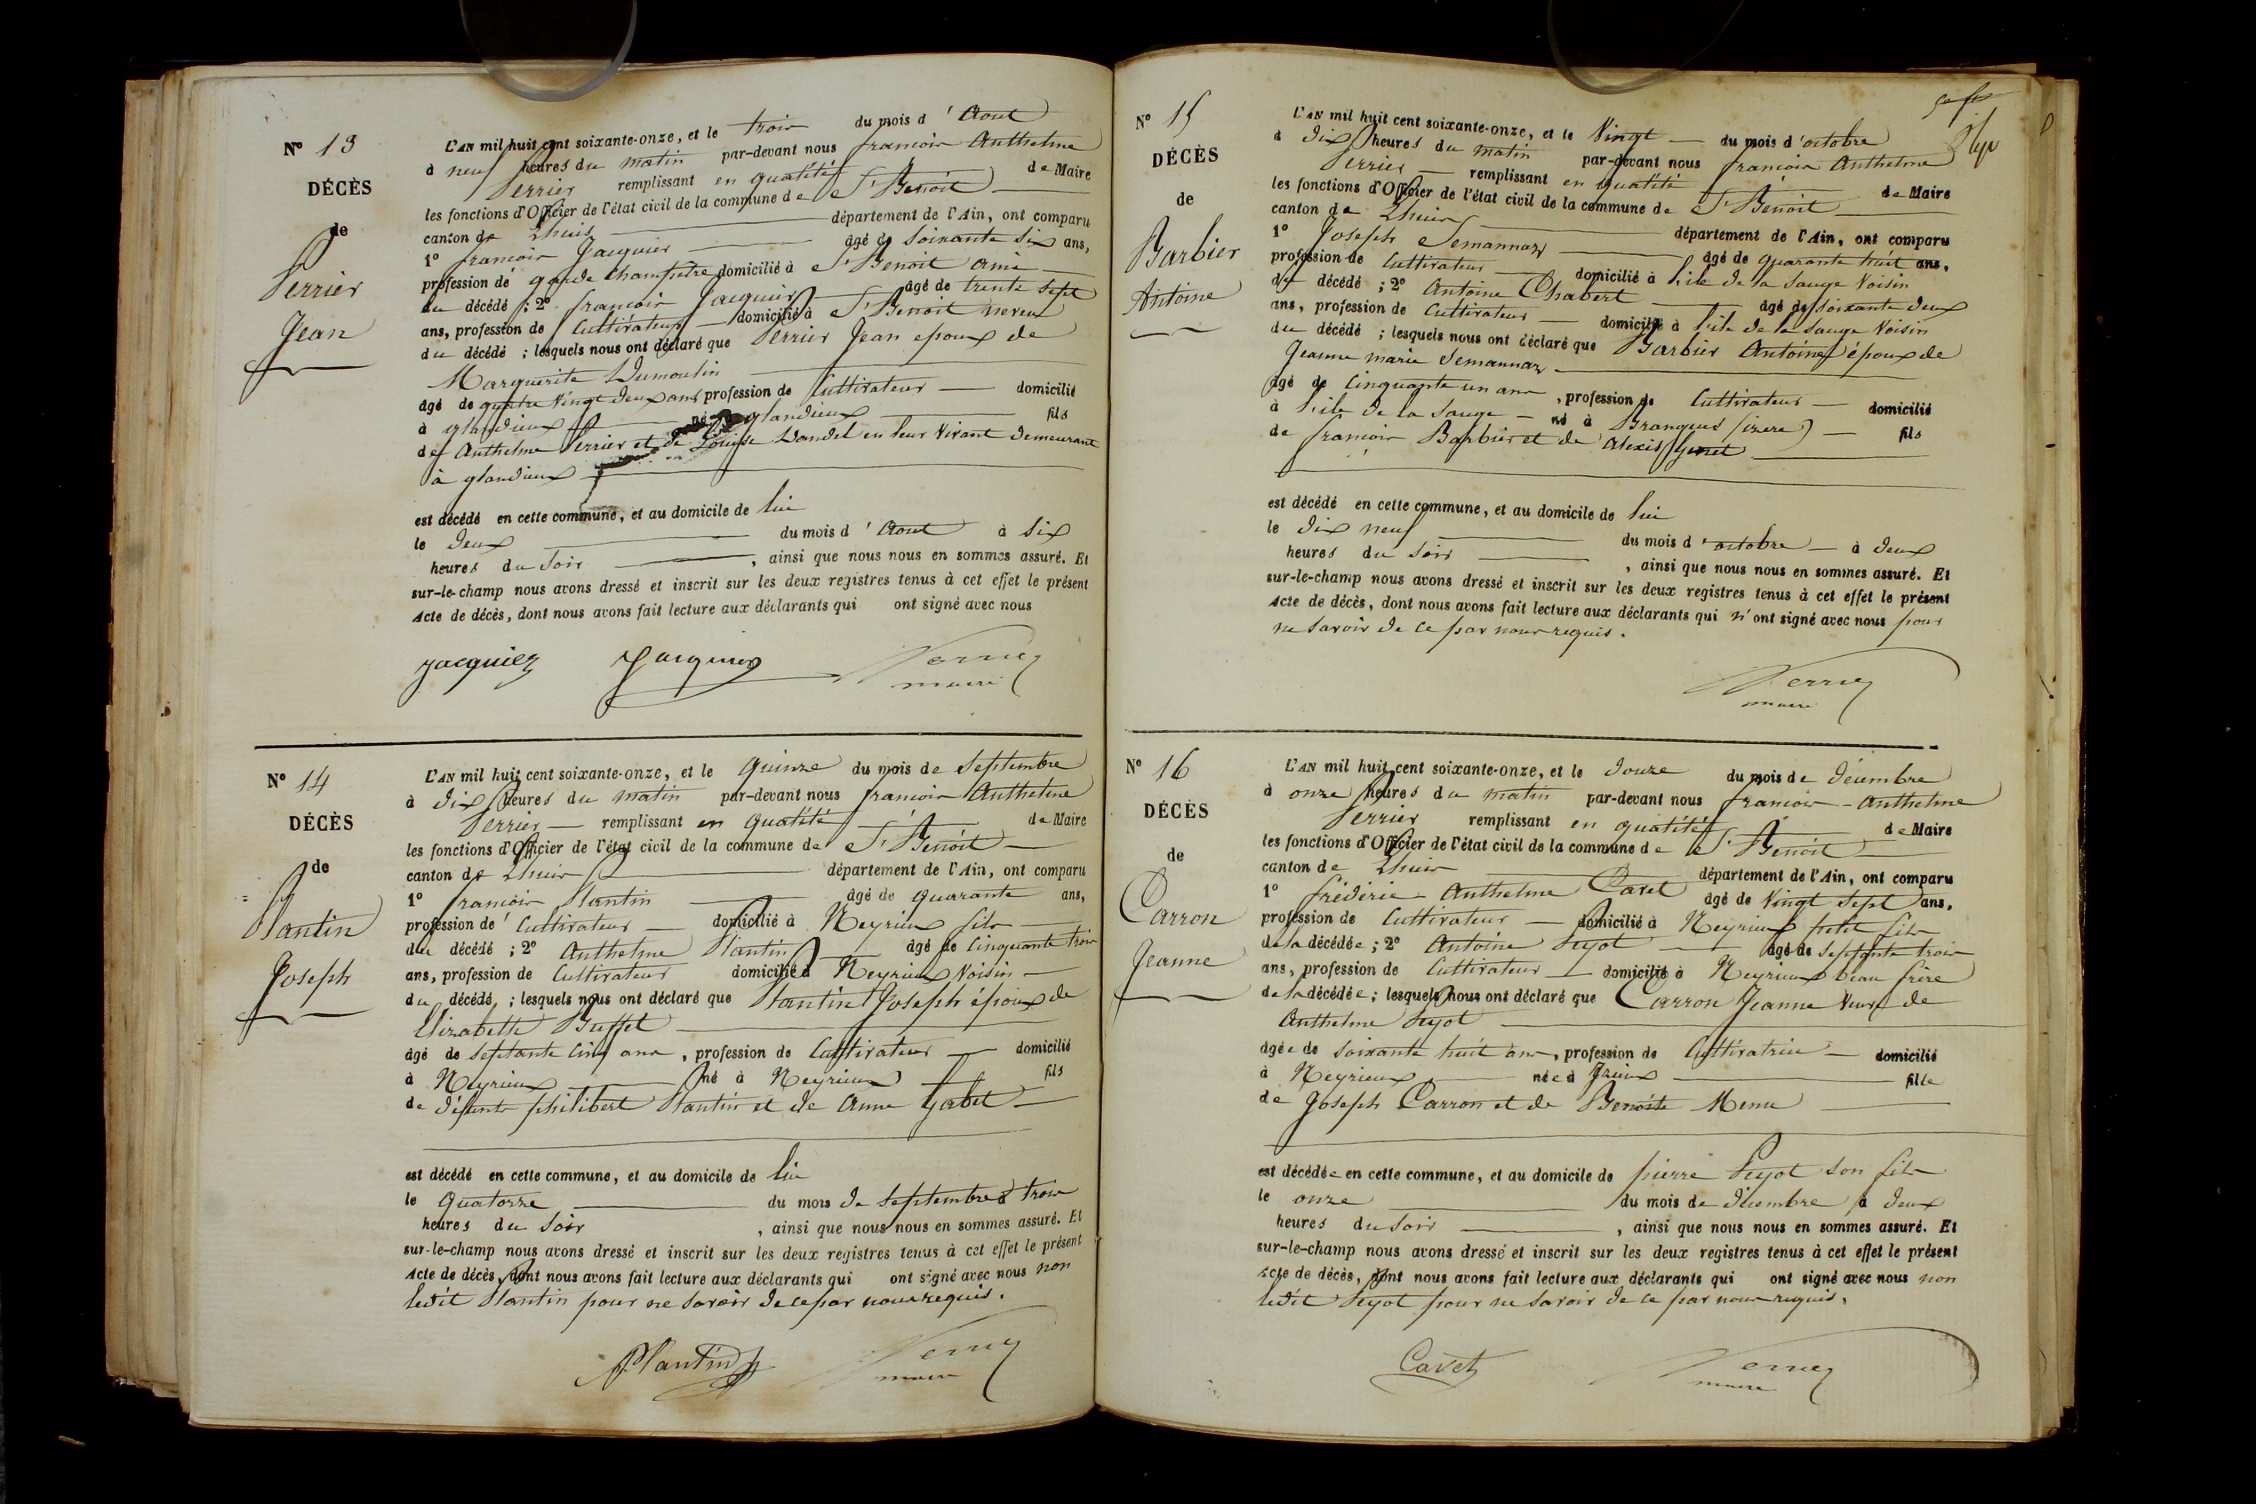 N° 13
DÉCÈS
de
Perrier
Jean
L'AN mil huit cent soixante-onze, et le trois du mois d'Aout
à neuf heures du matin par-devant nous françois Anthelme
Perrier remplissant en qualité de Maire
les fonctions d'Officier de l'état civil de la commune de St Benoit
canton de Lhuis département de l'Ain, ont comparu
1° françois Jacquier âgé de soixante six ans,
profession de garde champêtre domicilié à St Benoit ami
du décédé ; 2° françois Jacquier âgé de trente sept
ans, profession de Cultivateur domicilié à St Benoit neveu
du décédé ; lesquels nous ont déclaré que Perrier Jean epoux de
Marguerite Dumoulin
âgé de quatre vingt deux ans profession de Cultivateur domicilié
à glandieux né à glandieux fils
de Anthelme Perrier et de Louise Dandel en leur vivant demeurant
à glandieux
est décédé en cette commune, et au domicile de lui
le deux du mois d'Aout à six
heures du soir , ainsi que nous nous en sommes assuré. Et
sur-le-champ nous avons dressé et inscrit sur les deux registres tenus à cet effet le présent
Acte de décès, dont nous avons fait lecture aux déclarants qui ont signé avec nous
Jacquier Jacquier Perrier
maire
N° 14
DÉCÈS
de
Plantin
Joseph
L'AN mil huit cent soixante-onze, et le quinze du mois de Septembre
à dix heures du matin par-devant nous françois Anthelme
Perrier remplissant en qualité de Maire
les fonctions d'Officier de l'état civil de la commune de St Benoit
canton de Lhuis département de l'Ain, ont comparu
1° françois Plantin âgé de quarante ans,
profession de Cultivateur domicilié à Neyrieux fils
du décédé ; 2° Anthelme Plantin âgé de cinquante trois
ans, profession de Cultivateur domicilié à Neyrieux voisin
du décédé ; lesquels nous ont déclaré que Plantin Joseph époux de
Elizabeth Buffet
âgé de septante cinq ans , profession de Cultivateur domicilié
à Neyrieux né à Neyrieux fils
de défunts philibert Plantin et de Anne Gorbet
est décédé en cette commune, et au domicile de lui
le quatorze du mois de septembre à trois
heures du soir , ainsi que nous nous en sommes assuré. Et
sur-le-champ nous avons dressé et inscrit sur les deux registres tenus à cet effet le présent
Acte de décès, dont nous avons fait lecture aux déclarants qui ont signé avec nous non
ledit Plantin pour ne savoir de ce par nous requis.
Plantin Perrier
maire
N° 15
DÉCÈS
de
Barbier
Antoine
L'AN mil huit cent soixante-onze, et le vingt du mois d'octobre
à dix heures du matin par-devant nous françois Anthelme
Perrier remplissant en qualité de Maire
les fonctions d'Officier de l'état civil de la commune de St Benoit
canton de Lhuis département de l'Ain, ont comparu
1° Joseph Semannaz âgé de quarante huit ans,
profession de Cultivateur domicilié à l'ile de la Sauge voisin
du décédé ; 2° Antoine Chabert âgé de soixante deux
ans, profession de Cultivateur domicilié à l'ile de la Sauge voisin
du décédé ; lesquels nous ont déclaré que Barbier Antoine époux de
Jeanne marie Semannaz
âgé de cinquante un ans , profession de Cultivateur domicilié
à l'ile de la Sauge né à Brangues (izere) fils
de françois Barbier et de Alexis Genet
est décédé en cette commune, et au domicile de lui
le dix neuf du mois d'octobre à deux
heures du soir , ainsi que nous nous en sommes assuré. Et
sur-le-champ nous avons dressé et inscrit sur les deux registres tenus à cet effet le présent
Acte de décès, dont nous avons fait lecture aux déclarants qui n'ont signé avec nous pour
ne savoir de ce par nous requis.
Perrier
maire
N° 16
DÉCÈS
de
Carron
Jeanne
L'AN mil huit cent soixante-onze, et le douze du mois de décembre
à onze heures du matin par-devant nous françois Anthelme
Perrier remplissant en qualité de Maire
les fonctions d'Officier de l'état civil de la commune de St Benoit
canton de Lhuis département de l'Ain, ont comparu
1° frédéric Anthelme Cavet âgé de vingt sept ans,
profession de Cultivateur domicilié à Neyrieux petit fils
de la décédée ; 2° Antoine Peyot âgé de septante trois
ans, profession de Cultivateur domicilié à Neyrieux beau frère
de la décédée ; lesquels nous ont déclaré que Carron Jeanne veuve de
Anthelme Peyot
âgée de soixante huit ans, profession de Cultivatrice domicilié
à Neyrieux née à fille
de Joseph Carron et de Benoite Menu
est décédée en cette commune, et au domicile de pierre Peyot son fils
le onze du mois de décembre à deux
heures du soir , ainsi que nous nous en sommes assuré. Et
sur-le-champ nous avons dressé et inscrit sur les deux registres tenus à cet effet le présent
Acte de décès, dont nous avons fait lecture aux déclarants qui ont signé avec nous non
ledit Peyot pour ne savoir de ce par nous requis.
Cavet Perrier
maire